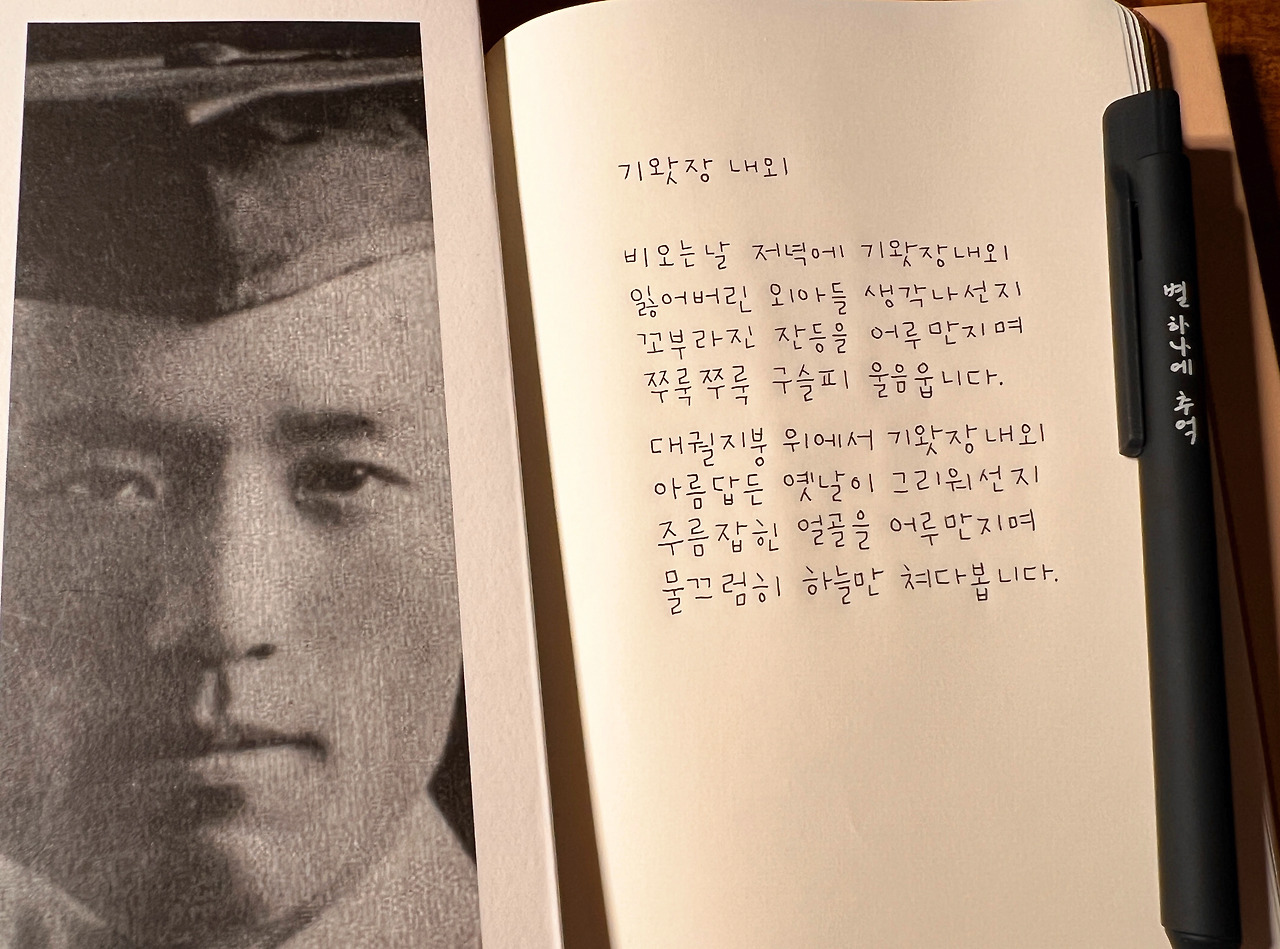 기왓장 내외
비오는날 저녁에 기왓장내외
잃어버린 외아들 생각나선지
꼬부라진 잔등을 어루만지며
쭈룩쭈룩 구슬피 울음웁니다.
대궐지붕 위에서 기왓장내외
아름답든 옛날이 그리워선지
주름잡힌 얼골을 어루만지며
물끄럼히 하늘만 쳐다봅니다.
별 하나에 추억